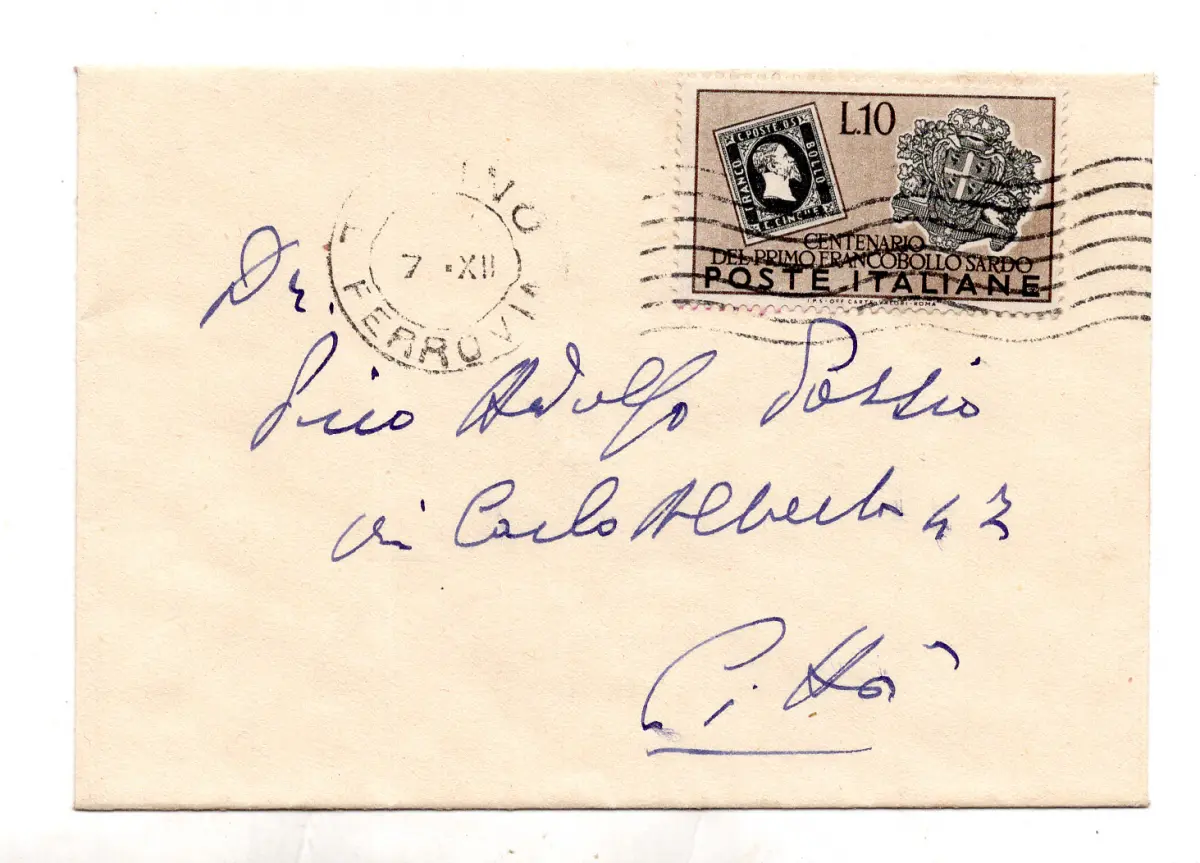 L.10
C. POSTE. 05
FRANCO
BOLLO
C. CINQUE
CENTENARIO
DEL PRIMO FRANCOBOLLO SARDO
POSTE ITALIANE
I.P.S-OFF. CARTE-VALORI-ROMA
INO
7 ·XII
FERROVI
Dr.
Adolfo
Carlo Alberto 42
Città